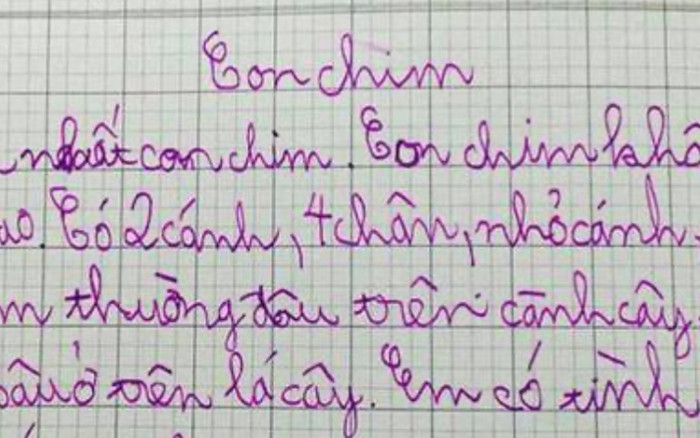 Con chim
nhất con chim. Con chim khô
ao. Có 2 cánh, 4 chân, nhỏ cánh
m thường đâu trên cành cây
bâu ở trên lá cây. Em có tình